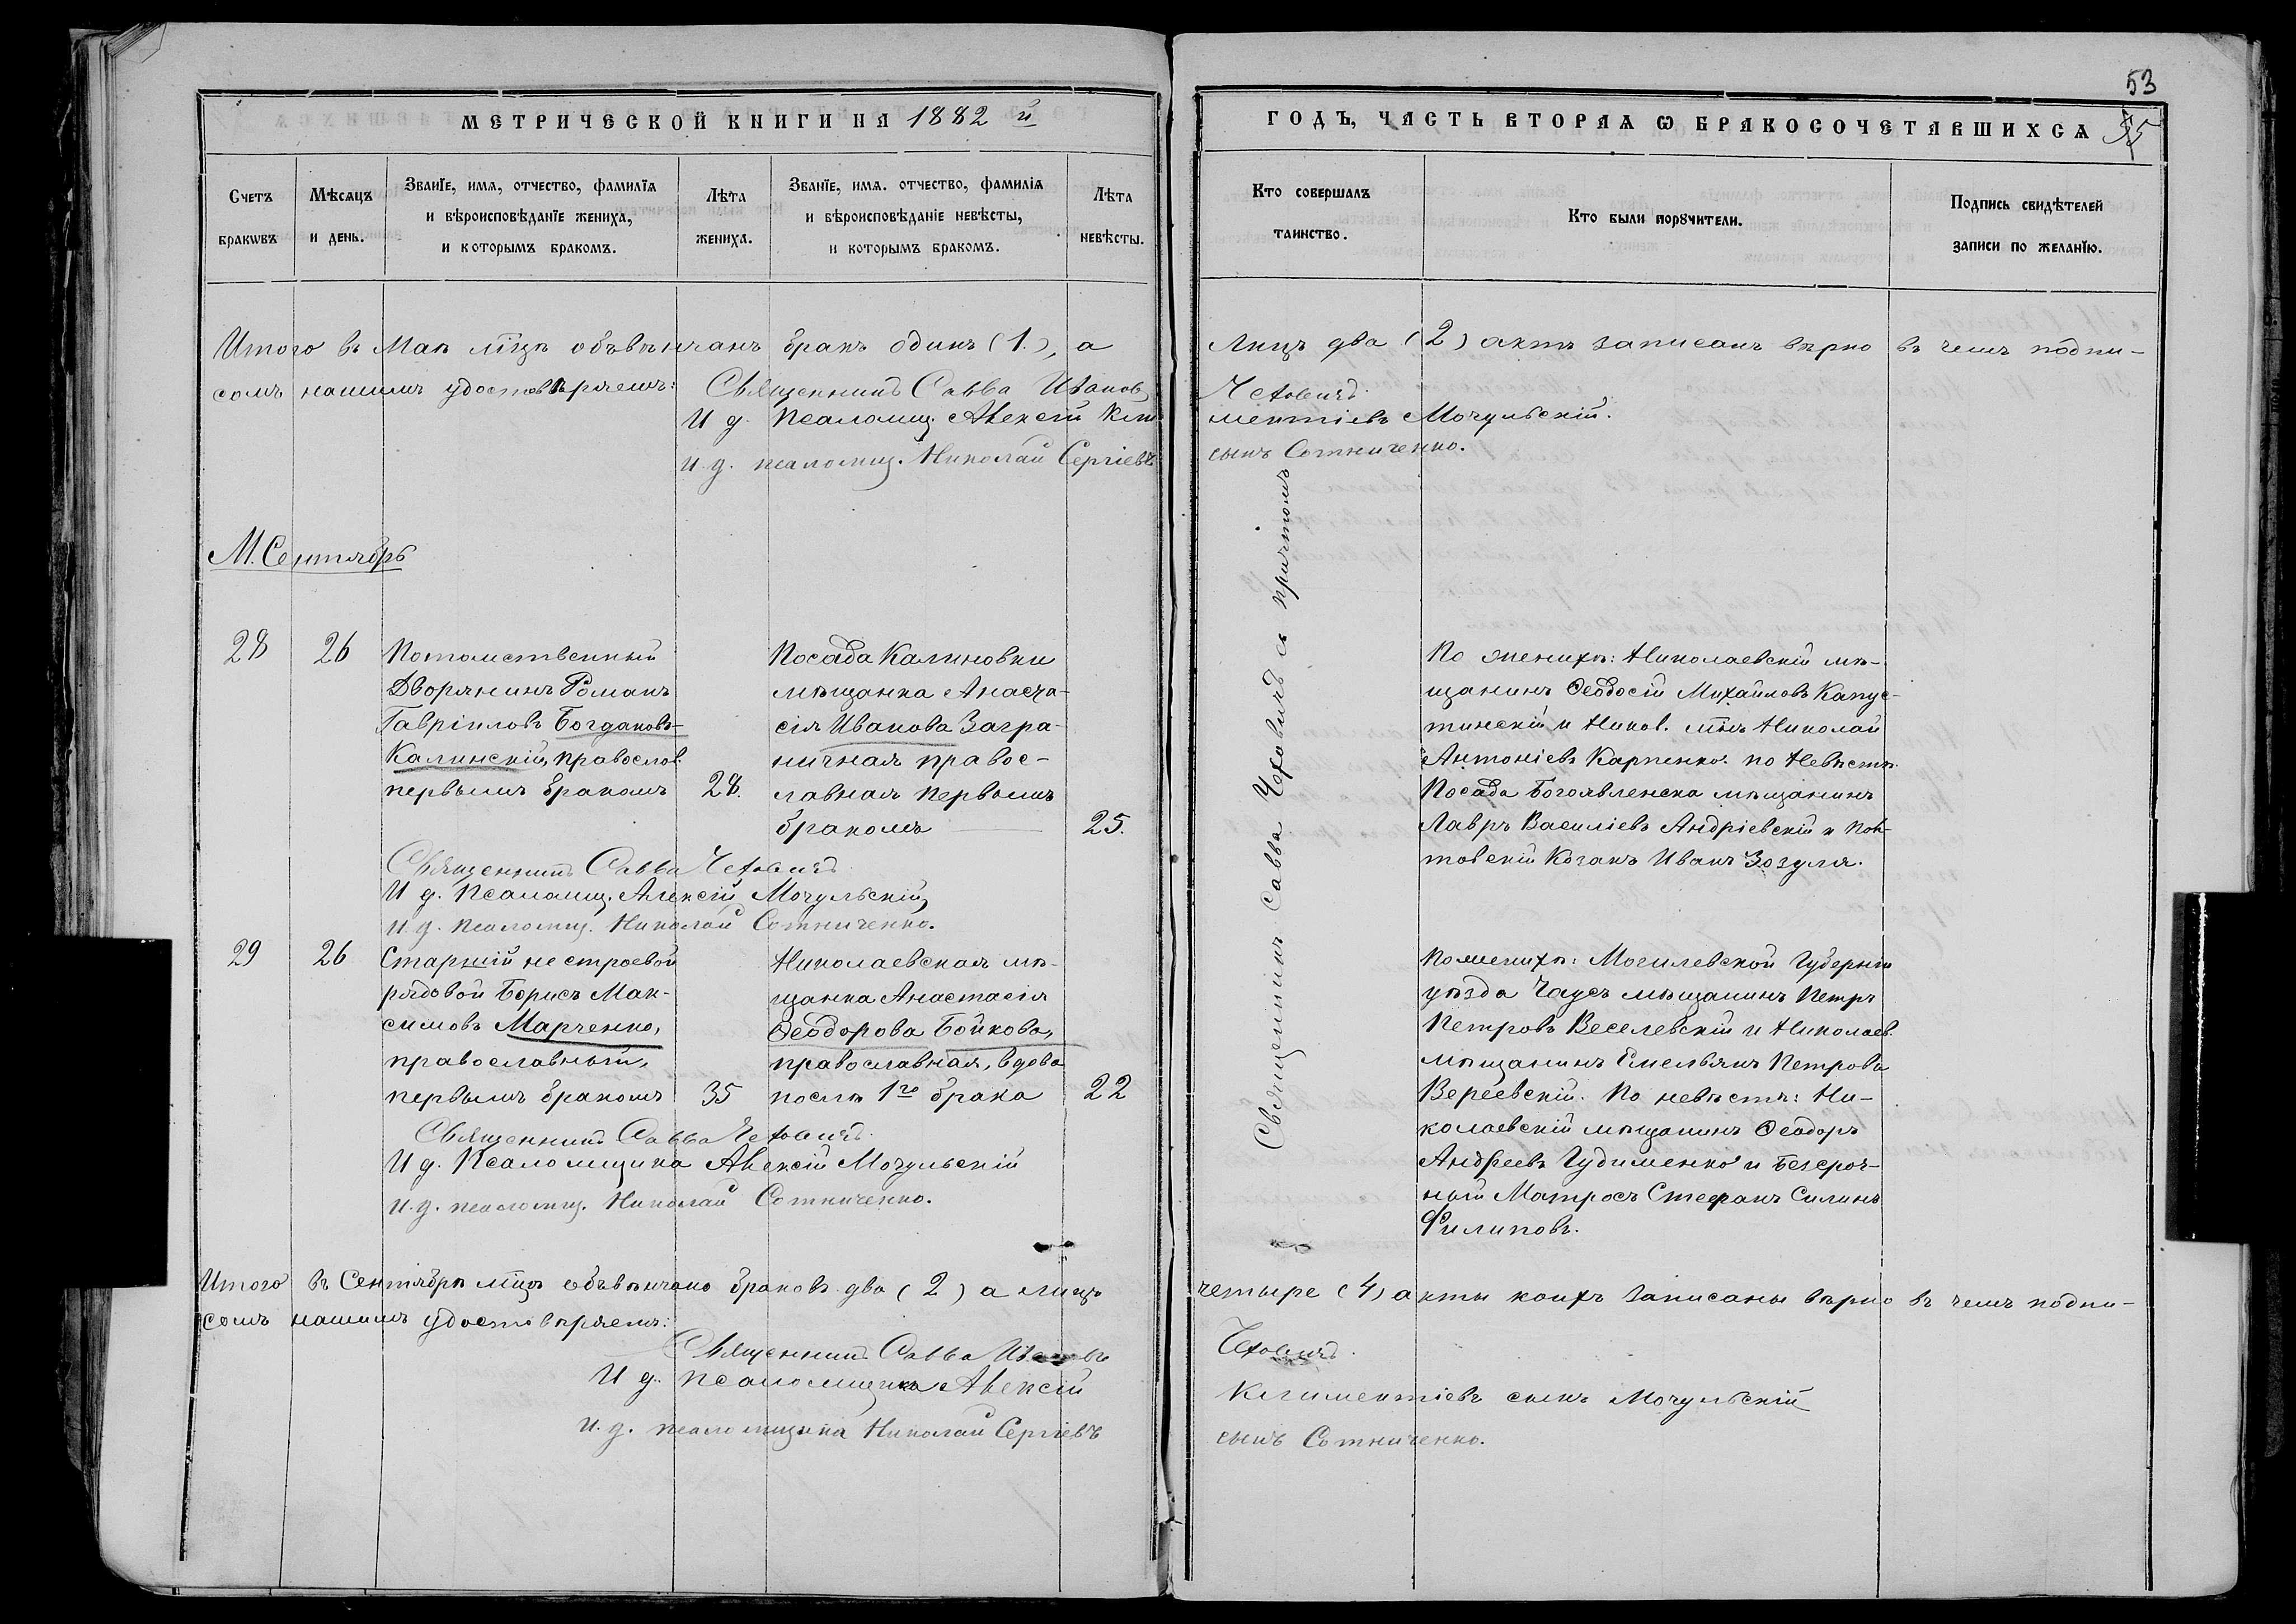 53
МЕТРИЧЕСКОЙ КНИГИ НА 1882 й
ГОДЪ, ЧАСТЬ ВТОРАѦ Ѿ БРАКОСОЧЕТАВШИХСѦ
55
Счетъ браковъ
Мѣсѧцъ и день.
Званїе, имѧ, отчество, фамилїѧ
и вѣроисповѣданїе жениха,
и которымъ бракомъ.
Лѣта жениха.
Званїе, имѧ. отчество, фамиліѧ
и вѣроисповѣданіе невѣсты,
и которымъ бракомъ.
Лѣта невѣсты.
Кто совершалъ таинство.
Кто были порꙋчители.
Подпись свидѣтелей
записи по желанїю.
Итого въ Маѣ м̃цѣ обвѣнчанъ бракъ одинъ (1.), а
лицъ два (2) актъ записанъ вѣрно въ чемъ подпи-
сомъ нашимъ удостовѣряемъ:
Священникъ Савва Ивановъ
Чеховичъ.
И д. Псаломщ. Алексій Кли
ментіевъ Мочульскій.
и. д. псаломщ. Николай Сергіевъ
сынъ Сотниченко.
М. Сентябрь
28
26
Потомственный
Дворянинъ Романъ
Гавріиловъ Богдановъ-
Калинскій, православ.
первымъ бракомъ
28.
Посада Калиновки
мѣщанка Анаста-
сія Иванова Загра-
ничная правос-
лавная первымъ
бракомъ
25.
Священникъ Савва Чеховичъ с причтомъ
По женихѣ: Николаевскій мѣ-
щанинъ Ѳеодосій Михаиловъ Капус-
тинскій и Никол. мѣщ. Николай
Антоніевъ Карпенко. по Невѣстѣ
Посада Богоявленска мѣщанинъ
Лавръ Василіевъ Андріевскій и Пол-
тавскій Козакъ Иванъ Зозуля.
Священникъ Савва Чеховичъ
И д. Псаломщ. Алексій Мочульскій
и. д. псаломщ. Николай Сотниченко.
29
26
Старшій не строевой
рядовой Борисъ Мак-
симовъ Марченко,
православный,
первымъ бракомъ
35
Николаевская мѣ-
щанка Анастасія
Ѳеодорова Бойкова,
православная, вдова
послѣ 1го брака
22
По женихѣ: Могилевской Губерніи
уѣзда Чаусъ мѣщанинъ Петръ
Петровъ Веселевскій и Николаев.
мѣщанинъ Емельянъ Петровъ
Вереевскій. По невѣстѣ: Ни-
колаевскій мѣщанинъ Ѳеодоръ
Андреевъ Гудименко и Безсроч-
ный Матросъ Стефанъ Силинъ
Филиповъ.
Священникъ Савва Чеховичъ.
И д. Псаломщика Алексій Мочульскій
и. д. псаломщ. Николай Сотниченко.
Итого въ Сентябрѣ м̃цѣ обвѣнчано браковъ два (2) а лицъ
четыре (4) акты коихъ записаны вѣрно въ чемъ подпи-
сомъ нашимъ удостовѣряемъ:
Священникъ Савва Ивановъ
Чеховичъ.
И д. Псаломщика Алексій
Климентіевъ сынъ Мочульскій
и. д. псаломщика Николай Сергіевъ
сынъ Сотниченко.